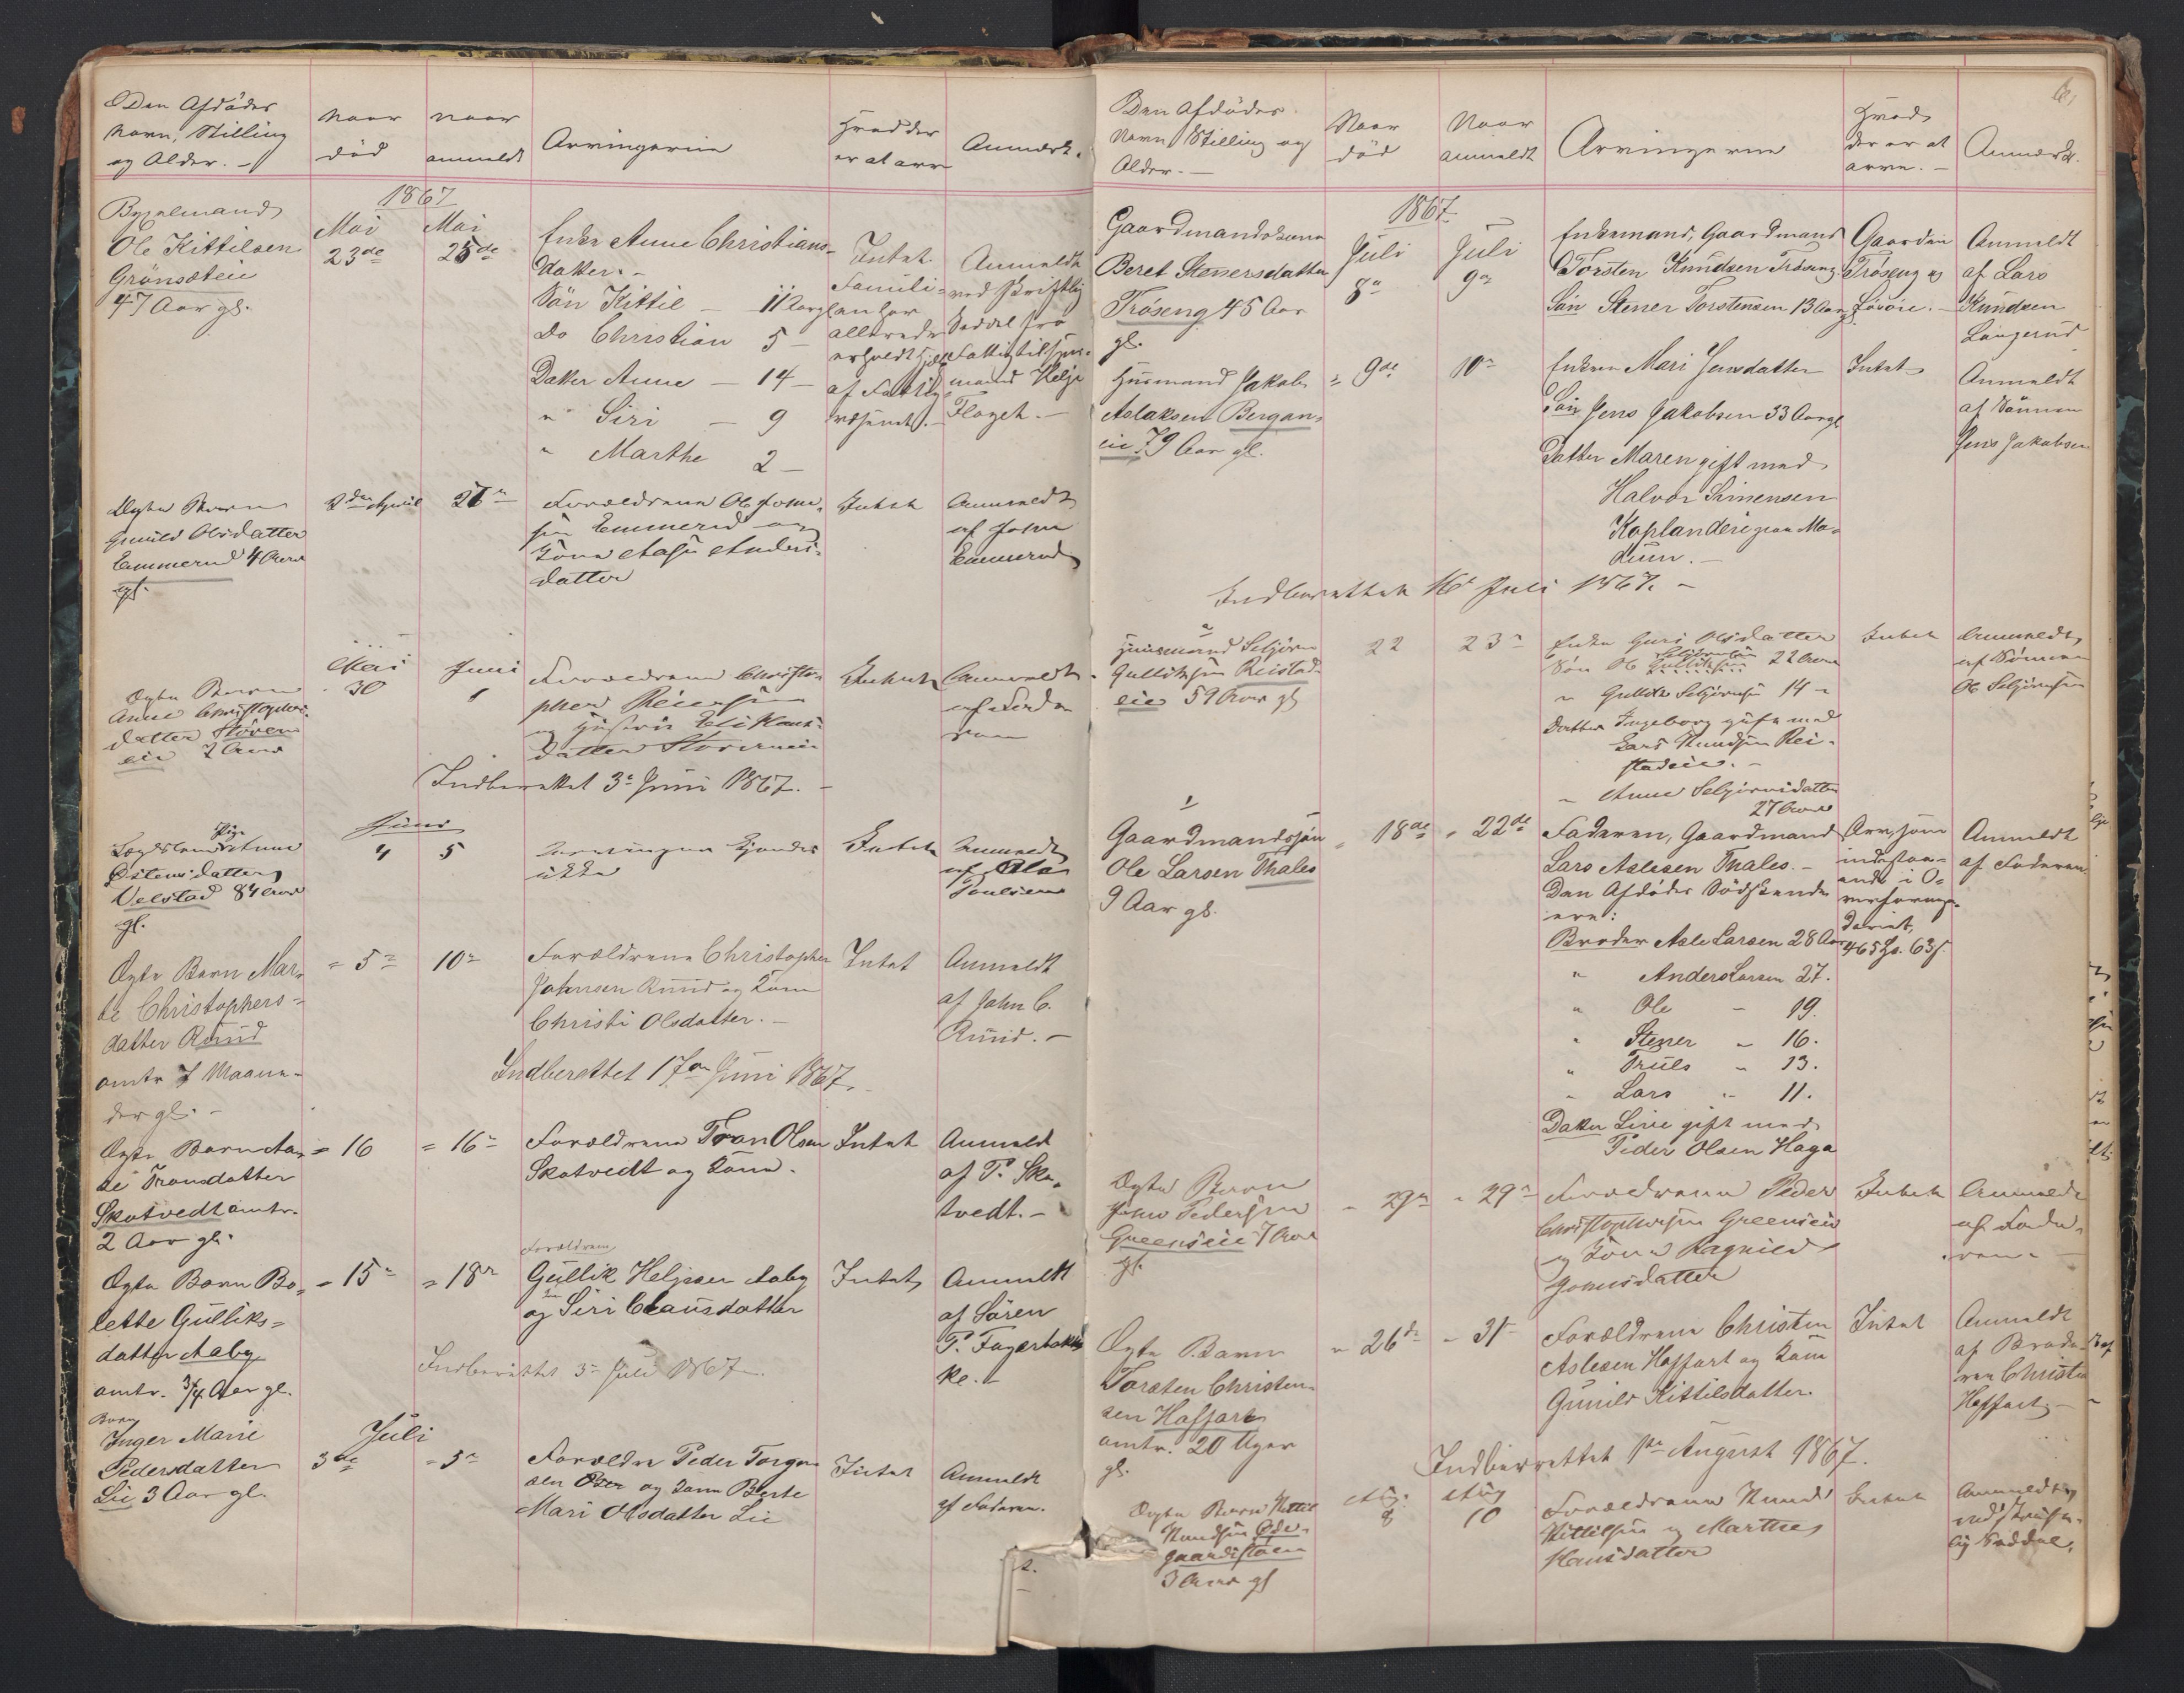 Den Afdødes
Navn, Stilling
og Alder. -
Naar
død
Naar
anmeldt
Arvingerne
Hvad der
er at arve
Anmærk.
1867
Bygselmand
Ole Kittilsen
Grönsöteie
47 Aar gl.
Mai
23de
Mai
25de
Enke Anne Christians-
datter. -
Sön Kittil - 11 Aar gl
Do Christian 5 -
Datter Anne - 14 -
" Siri - 9
" Marthe 2 -
Intet.
Famili-
en har
allerede
erholdt Hjælp
af Fattig-
væsenet. -
Anmeldt
ved skriftlig
Seddel fra
Fattigtilsyns-
mand Helge
Flaget. -
Ægte Barn
Gunild Olsdatter
Emmerud 4 Aar
gl.
2den April
26de
Forældrene Ole John-
sen Emmerud og
Kone Aase Anders-
datter
Intet
Anmeldt
af John
Emmerud
Ægte Barn
Anne Christophers-
datter Støvern-
eie 2 Aar
Mai
30
Juni
1
Forældrene Christo-
pher Reiersen
og Hustru Eli Hans-
datter Støverneie
Intet
Anmeldt
af Fade-
ren
Indberettet 3e Juni 1867. -
Pige
Lægdslem Anne
Østensdatter
Velstad 84 Aar
gl.
Juni
4
5
Arvingerne kjendes
ikke
Intet
Anmeldt
af Ole
Poulsen
Ægte Barn Mar-
te Christophers-
datter Ruud
omtr 7 Maane-
der gl. -
" 5e
10e
Forældrene Christopher
Johnsen Ruud og Kone
Christi Olsdatter. -
Intet
Anmeldt
af John C.
Ruud. -
Indberettet 17de Juni 1867.
Ægte Barn An-
ne Transdatter
Skotvedt omtr.
2 Aar gl.
" 16
" 16e
Forældrene Tron Olsen
Skotvedt og Kone.
Intet
Anmeldt
af T. Sko-
tvedt. -
Ægte Barn Bo-
lette Gulliks-
datter Aaby
omtr. 3/4 Aar gl.
" 15e
" 18e
Forældrene
Gullik Helgesen Aaby
og Siri Clausdatter
Intet
Anmeldt
af Sören
P. Fagerbak-
ke. -
Indberettet 3e Juli 1867.
Barn
Inger Marie
Pedersdatter
Lie 3 Aar gl.
Juli
3de
" 5e
Forældre Peder Torger-
sen og Kone Berte
Mari Olsdatter Lie
Intet
Anmeldt
af Faderen.
Den Afdødes
Navn Stilling og
Alder. -
Naar
død
Naar
anmeldt
Arvingerne
Hvad
der er at
arve. -
Anmærk.
1867
Gaardmandskone
Beret Stenersdatter
Tröseng 45 Aar
gl.
Juli
8e
Juli
9e
Enkemand, Gaardmand
Torsten Knudsen Tröseng.
Sön Stener Torstensen 13 Aar gl
Gaarden
Tröseng og
Lösöre. -
Anmeldt
af Lars
Knudsen
Langerud
Husmand Jakob
Aslaksen Bergan-
eie 79 Aar gl.
" 9de
10e
Enken Mari Jensdatter
Sön Jens Jakobsen 33 Aar gl
Datter Maren gift med
Halvor Simensen
Koplanderie paa Mo-
dum. -
Intet
Anmeldt
af Sönnen
Jens Jakobsen
Indberettet 16e Juli 1867. -
Husmand Seljörn
Gulliksen Reistad-
eie 59 Aar gl
22
23e
Enke Guri Olsdatter
Sön Ole Seljörnsen 22 Aar
" Gullik Seljörnsen 14 -
Datter Ingeborg gift med
Lars Knudsen Rei-
stadeie. -
" Anne Seljörnsdatter
27 Aar
Intet
Anmeldt
af Sönnen
Ole Seljörnsen
Gaardmandssön
Ole Larsen Thales
9 Aar gl.
" 18de
" 22de
Faderen, Gaardmand
Lars Aslesen Thales. -
Den Afdödes Södskende
ere:
Broder Asle Larsen 28 Aar
" Anders Larsen 27.
" Ole - 19.
" Stener - 16.
" Truls - 13.
" Lars - 11.
Datter Live gift med
Peder Olsen Haga
Arv, som
indestaa-
ende i O-
verformyn-
deriet,
465 Sp. 63 s.
Anmeldt
af Faderen
Ægte Barn
Johns Pedersen
Greenseie 7 Aar
gl.
" 29e
" 29e
Forældrene Peder
Christophersen Greenseie
og Kone Ragnild
Johnsdatter
Intet
Anmeldt
af Fade-
ren. -
Ægte Barn
Torsten Christen-
sen Haffart
omtr. 20 Uger
gl.
" 26de
" 31
Forældrene Christen
Aslesen Haffart og Kone
Gunild Kittilsdatter.
Intet
Anmeldt
af Brode-
ren Christen
Haffart. -
Indberettet 1ste August 1867.
Ægte Barn Kittil
Knudsen Øde-
gaardstøen
3 Aar gl
Aug.
8
Aug
10
Forældrene Knud
Kittilsen og Marthe
Hansdatter
Intet
Anmeldt
ved skrift-
lig Seddel.